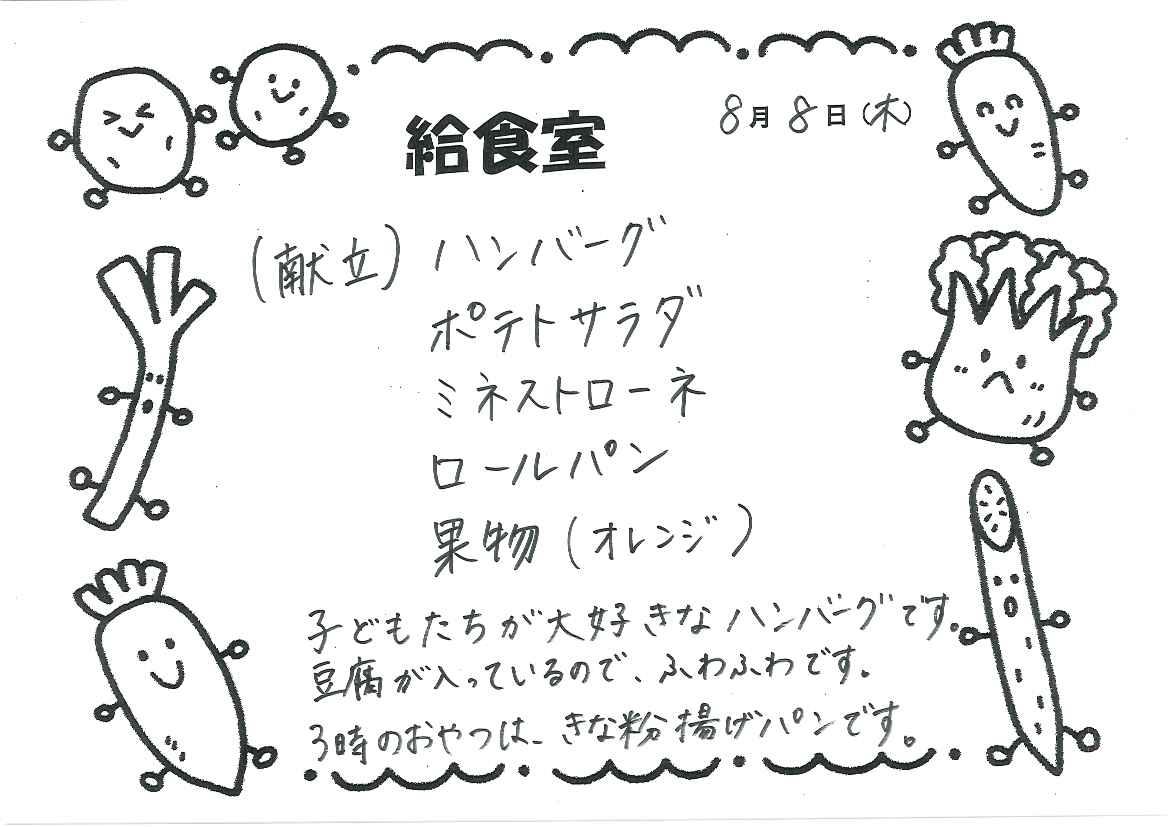 給食室
8月8日(木)
(献立)ハンバーグ
ポテトサラダ
ミネストローネ
ロールパン
果物(オレンジ)
子どもたちが大好きなハンバーグです。
豆腐が入っているので、ふわふわです。
3時のおやつは、きな粉揚げパンです。